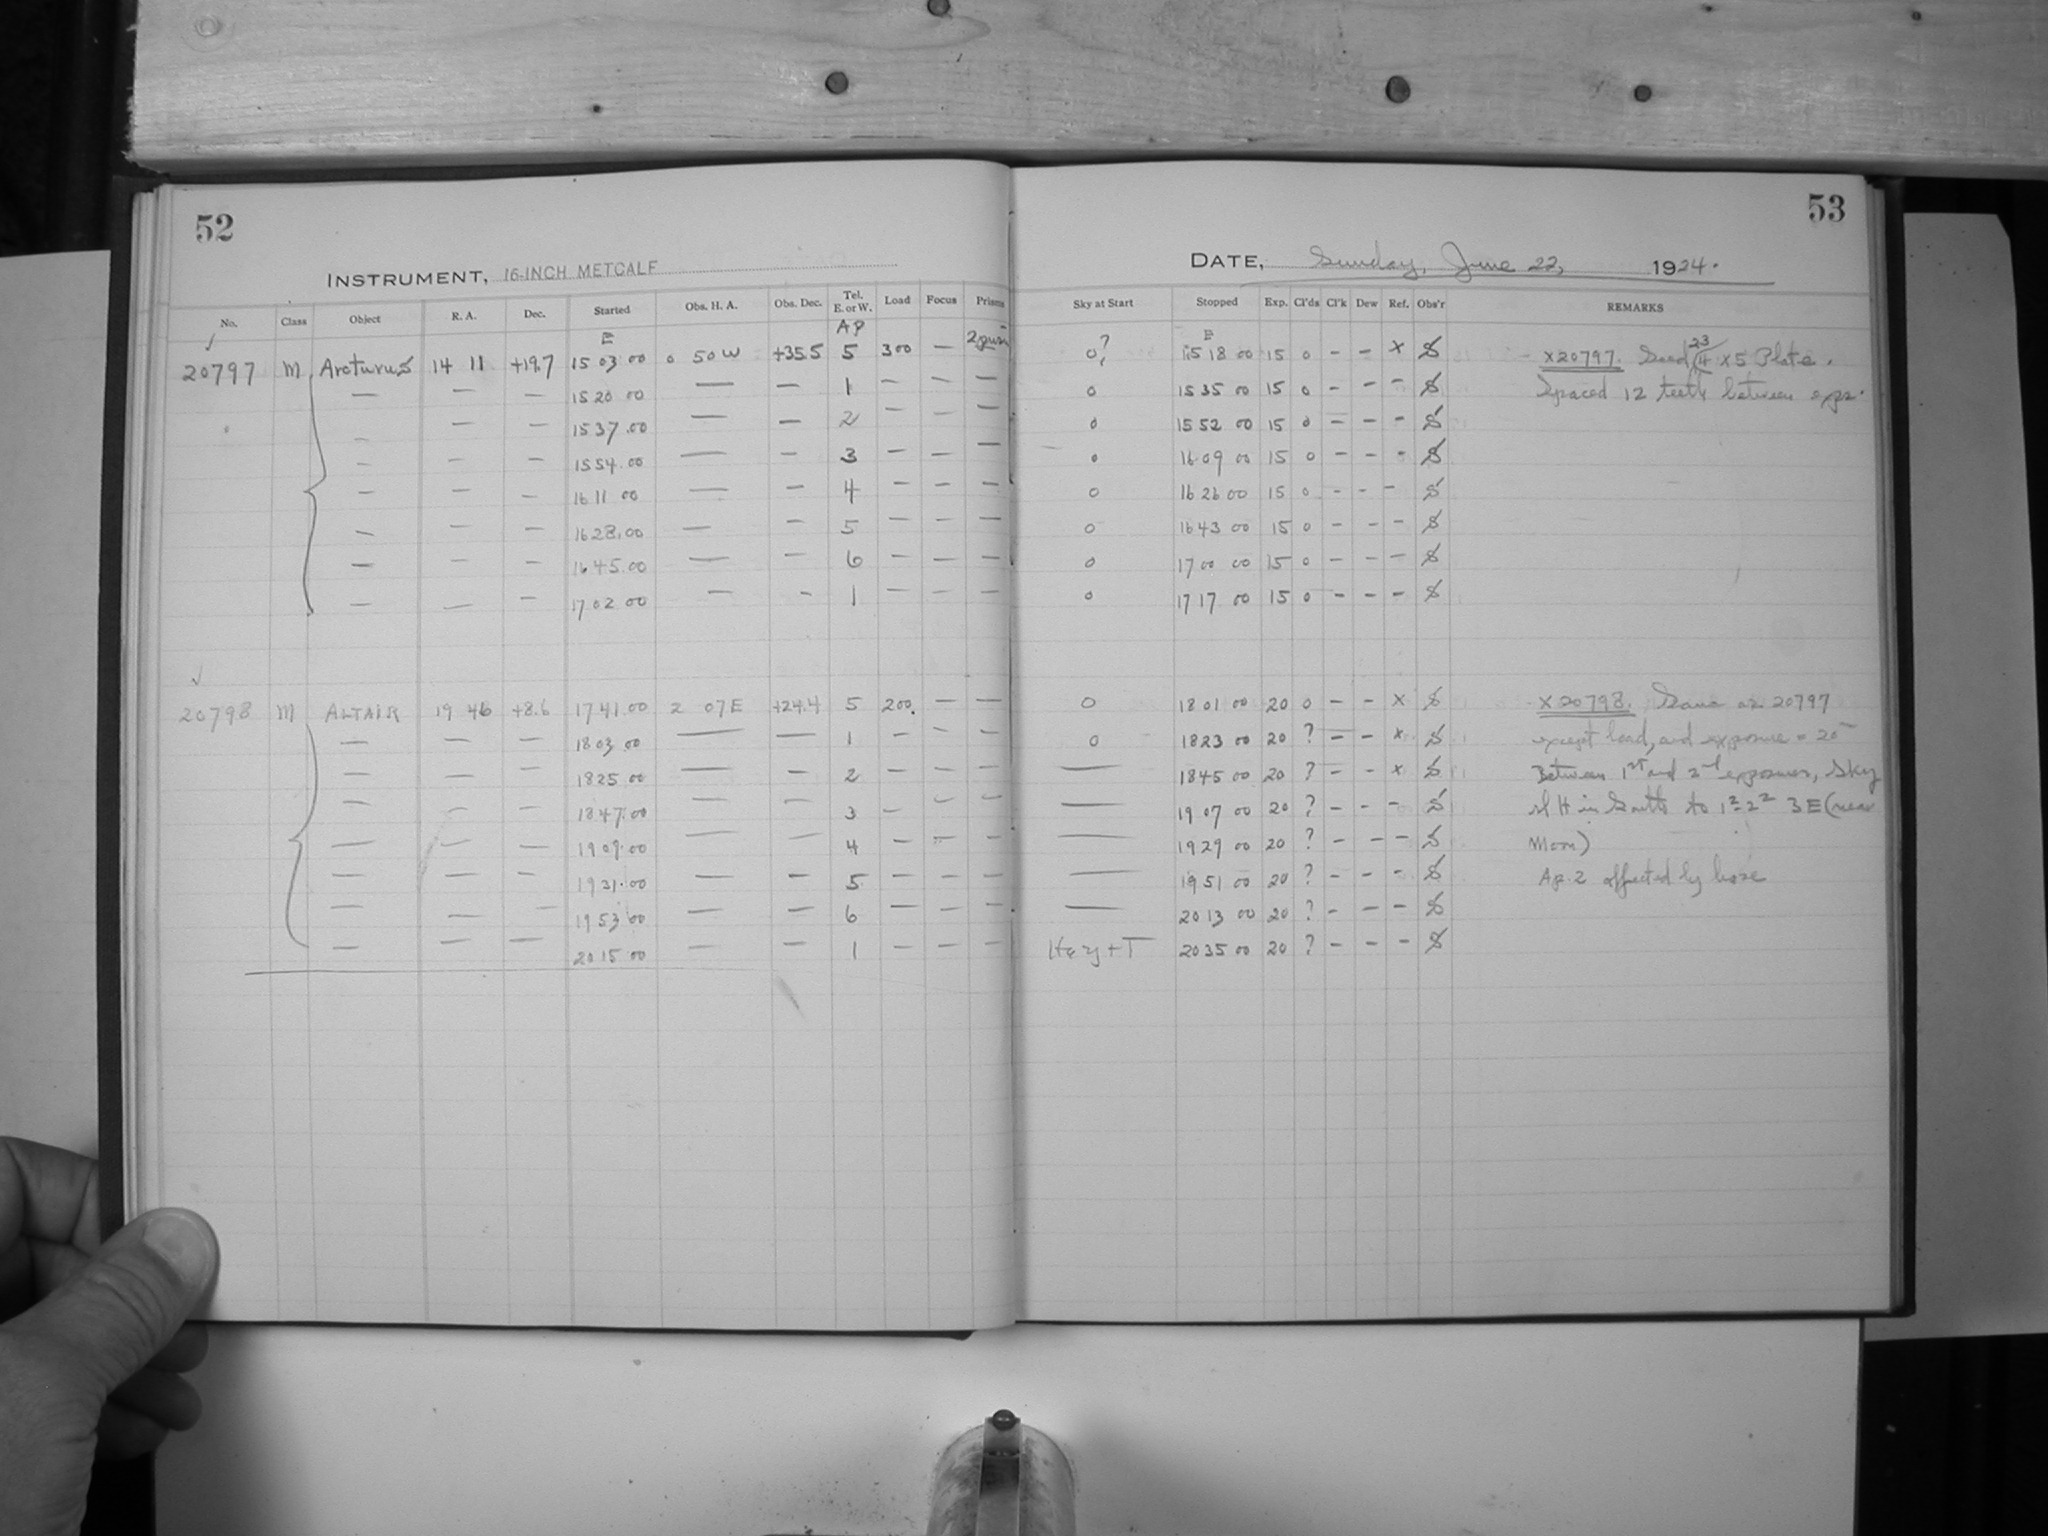 52
INSTRUMENT, 16-INCH METCALF
No. Class Object R. A. Dec. Started Obs. H. A. Obs. Dec. Tel. E. or W. Load Focus Prisms
E AP
✓ 20797 M Arcturus 14 11 +19.7 15 03 00 0 50 W +35.5 5 300 —
— — — 15 20 00 — — 1 — — —
— — 15 37 .00 — — 2 — — —
— — — 15 54 .00 — — 3 — — —
— — — 16 11 00 — — 4 — — —
— — — 16 28 .00 — — 5 — — —
— — — 16 45 .00 — — 6 — — —
— — — 17 02 00 — — 1 — — —
✓
20798 M ALTAIR 19 46 +8.6 17 41 .00 2 07 E +24.4 5 200. — —
— — — 18 03 .00 — — 1 — — —
— — — 18 25 .00 — — 2 — — —
— — — 18 47 .00 — — 3 — — —
— — — 19 09 .00 — — 4 — — —
— — — 19 31 .00 — — 5 — — —
— — — 19 53 00 — — 6 — — —
— — — 20 15 00 — — 1 — — —
53
DATE, Sunday, June 22, 1924.
Sky at Start Stopped Exp. Cl'ds Cl'k Dew Ref. Obs'r REMARKS
E
0? 15 18 00 15 0 – – X S X20797. Seed 23 4 x 5 Plate.
0 15 35 00 15 0 – – – S Spaced 12 teeth between exps.
0 15 52 00 15 0 – – – S
0 16 09 00 15 0 – – – S
0 16 26 00 15 0 – – – S
0 16 43 00 15 0 – – – S
0 17 00 00 15 0 – – – S
0 17 17 00 15 0 – – – S
0 18 01 00 20 0 – – X S X20798. Same as 20797
0 18 23 00 20 ? – – X S except load, and exposure = 20
— 18 45 00 20 ? – – X S Between 1st and 2nd exposures, Sky
— 19 07 00 20 ? – – – S sl H in South to 3E (near
— 19 29 00 20 ? – – – S Moon)
— 19 51 00 20 ? – – – S Ap. 2 affected by haze
— 20 13 00 20 ? – – – S
Hazy + T 20 35 00 20 ? – – – S